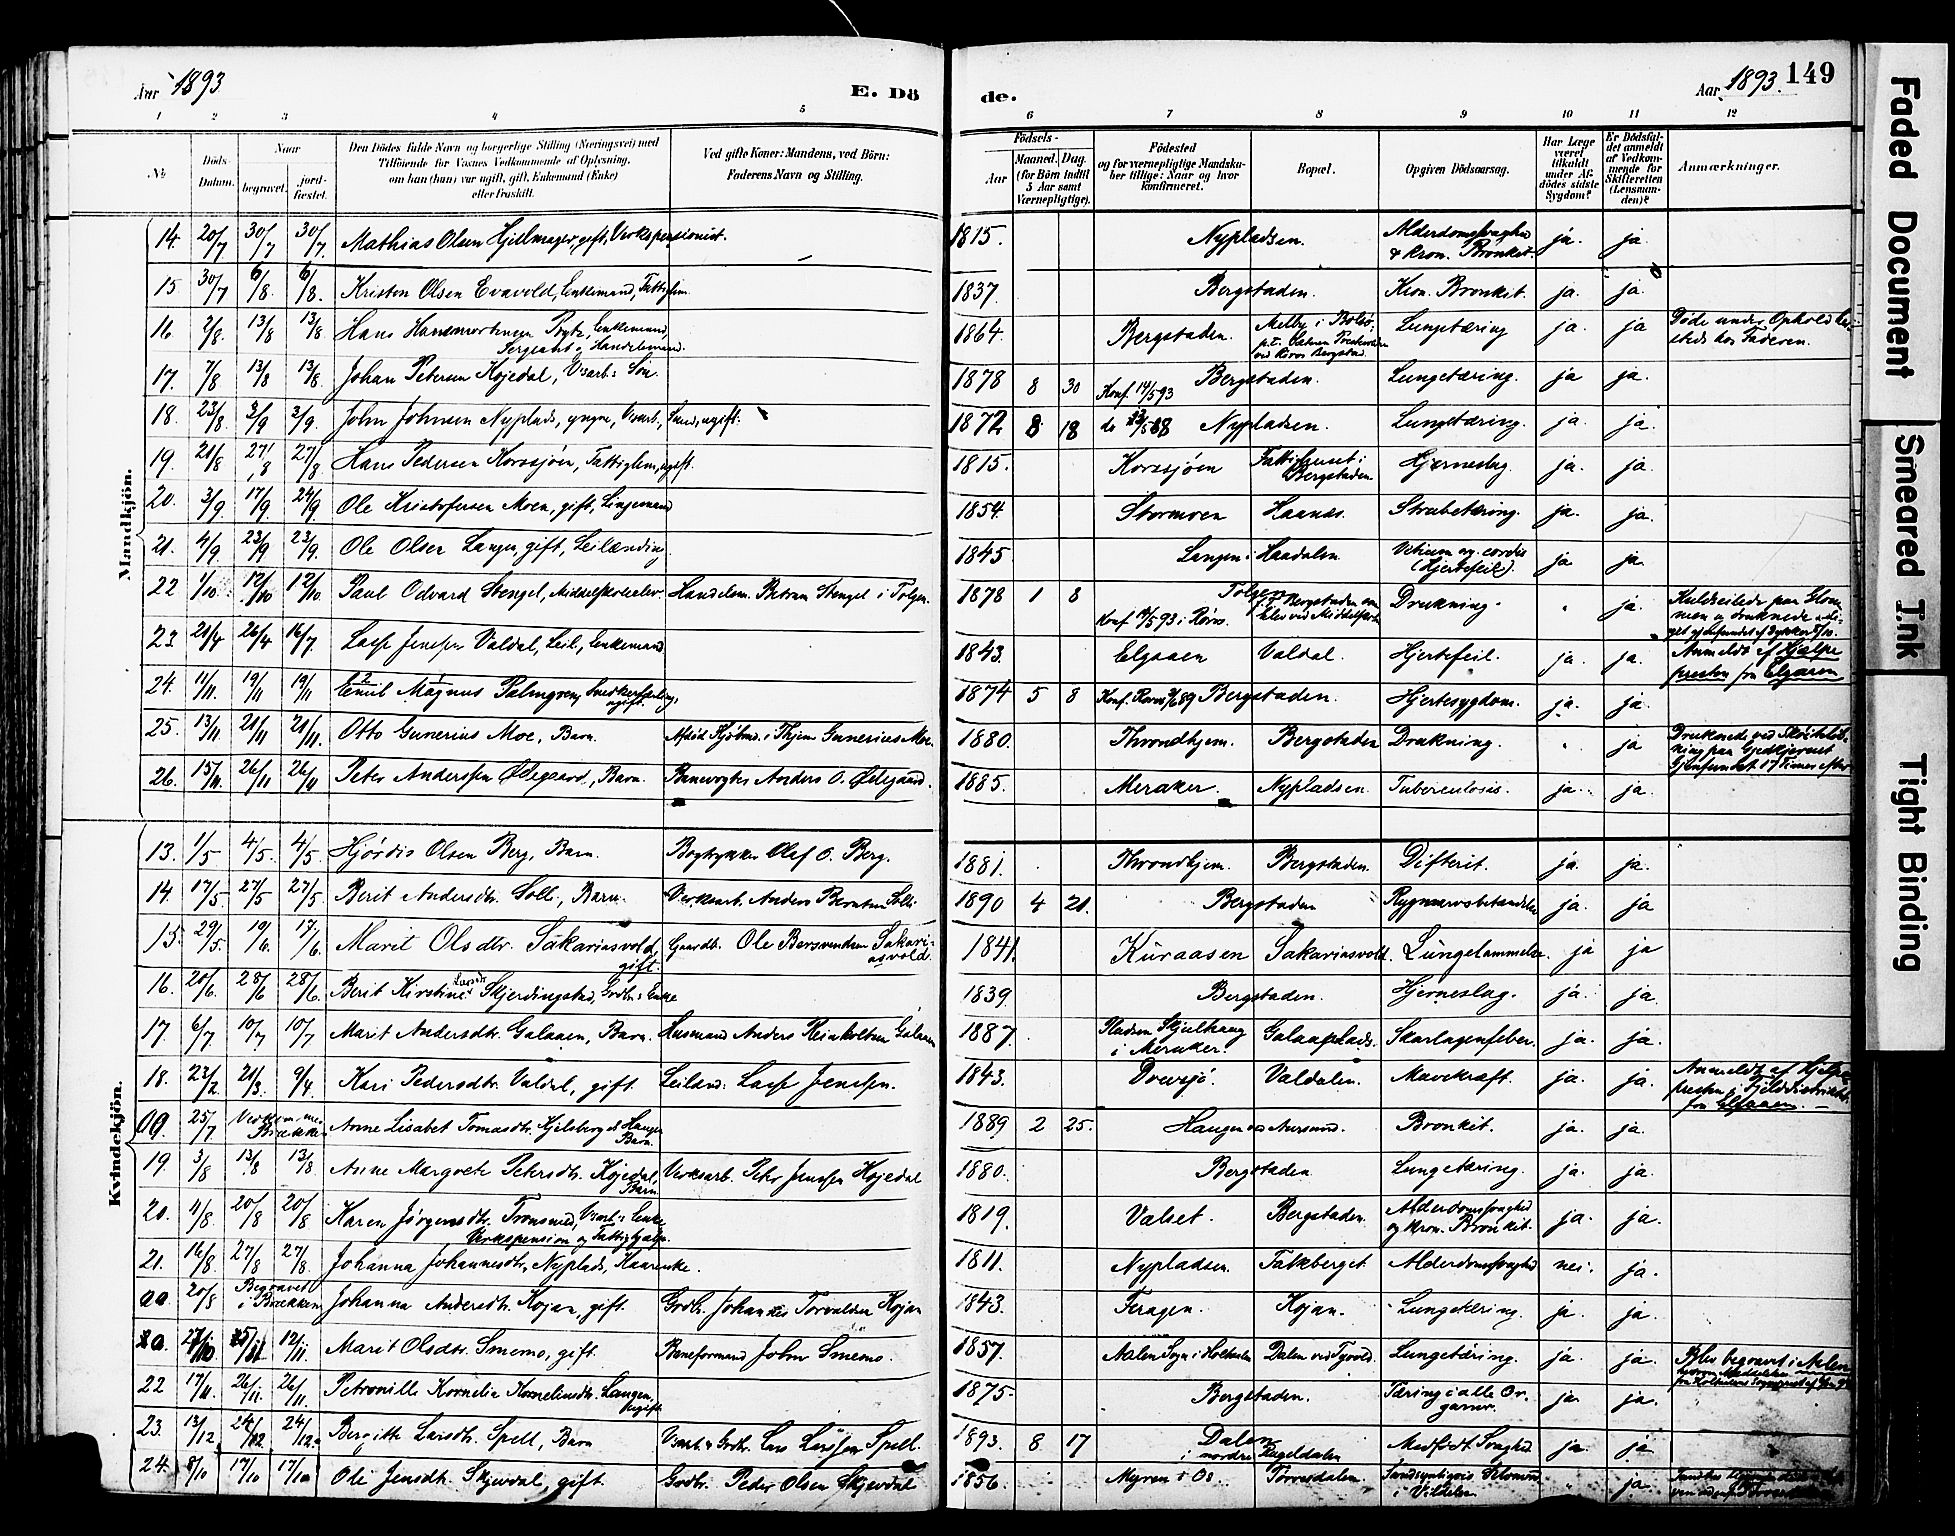 Aar 1893 E. Dö
de. Aar 1893. 149
1 2 3 4 5
6 7 8 9 10 11 12
№
Döds Datum.
Naar
begravet.
jordfæstet.
Den Dödes fulde Navn og borgerlige Stilling (Næringsvei) med
Tilföiende for Voxnes Vedkommende af Oplysning,
om han (hun) var ugift, gift, Enkemand (Enke)
eller fraskilt.
Ved gifte Koner: Mandens, ved Börn:
Faderens Navn og Stilling.
Födsels-
Aar
Maaned. Dag.
(for Börn indtil
5 Aar samt
Værnepligtige).
Födested
og for værnepligtige Mandskaber tillige: Naar og hvor
konfirmeret.
Bopæl.
Opgiven Dödsaarsag.
Har Læge været tilkaldt under Afdödes sidste Sygdom?
Er Dödsfaldet anmeldt af Vedkommende for Skifteretten (Lensmanden)?
Anmærkninger.
Mandkjön.
14. 20/7 30/7 30/7. Mathias Olsen Hjullmager, gift, Verkspensionist. 1815. Nypladsen. Alderdomssvaghed & kron. Bronkit. ja. ja
15. 30/7 6/8 6/8. Olsen Evavold, Enkemand, Fattiglem. 1837. Bergstaden. Kron. Bronkit. ja. ja.
16. 2/8. 13/8 13/8. Hans Enkemand, Sergeant og Handelsmand. 1864. Bergstaden. Lungetæring ja. ja Døde under Ophold hos Faderen.
17. 7/8 13/8 13/8. Johan Petersen Kojedal, Søn. 1878 8 30 Konf. 14/5 93 Bergstaden. Lungetæring. ja ja.
18. 23/8. 3/9 3/9. John Johnsen Nyplads, yngre, ugift. 1872 8 18 Nypladsen. Lungetæring. ja. ja.
19. 21/8 27/8 27/8 Hans Pedersen Korssjøen, Fattiglem, ugift. 1815. Korssjøen Fattighuset i Bergstaden. Hjerneslag. ja. ja.
20. 3/9. 17/9. 24/9 Ole Kristofersen Moen, gift, 1854. Stormoen Haanes. Strubetæring. ja. ja.
21. 4/9. 23/9 23/9. Ole Olsen Langen, gift, Leilænding. 1845. Langen i Haadalen. Vitium org. cordis (Hjertefeil). ja ja.
22 1/10. 12/10 12/10. Paul Odvard Stengel, Middelskoleelev. Handelsm. Stengel i Tolgen. 1878 1 8 Tolgen Konf. 93 i Røros. Drukning. " ja.
23 21/4 26/4 16/7. Lasse Jensen Valdal, Leil., Enkemand 1843. Elgaaen Valdal. Hjertefeil. ja. ja. Anmeldt af Hjælpepresten fra Elgaaen
24. 11/11. 19/11 19/11 Emil Magnus Palmgren, Snedkerlærling, ugift. 1874 5 8 Bergstaden. Hjertesygdom. ja. ja.
25. 13/11 21/11 21/11. Otto Gunerius Moe, Barn. Afdød Kjøbmd. i Thjem Gunerius Moe. 1880. Throndhjem. Bergstaden Drukning. " ja
26. 15/11. 26/11 26/11 Peter Andersen Ødegaard, Barn. Banevogter Anders O. Ødegaard. 1885. Meraker. Nypladsen. Tuberculosis. ja. ja.
Kvindekjön.
13. 1/5 4/5. 4/5 Hjørdis Olsen Berg, Barn. Bogtrykker Olaf O. Berg. 1881. Throndhjem. Bergstaden. Difterit. ja. ja.
14. 17/5. 27/5 27/5 Berit Andersdtr. Solli, Barn. Verksarb. Anders Berntsen Solli. 1890 4 21. Bergstaden ja. ja
15. 29/5. 19/6. 17/6 Marit Olsdtr. Sakariasvold gift. Gaardb. Ole Bersvendsen Sakariasvold. 1841. Kuraasen Sakariasvold. Lungelammelse. ja ja
16. 20/6. 28/6 28/6. Berit Kirstine Larsdtr. Skjerdingstad, Grdbr.s Enke 1839. Bergstaden. Hjerneslag. ja. ja.
17. 6/7 10/7 10/7 Marit Andersdtr. Galaaen, Barn. Husmand Anders Reinholtsen Galaaen 1887. Pladsen Skjelhaug i Meraker. Galaaplads. Skarlagensfeber. ja. ja.
18. 23/2 21/3. 9/4 Kari Pedersdtr. Valdal, gift. Leilænd: Lasse Jensen. 1843. Drevsjø. Valdalen. Mavekræft. ja. ja. Anmeldt af Hjælpepresten i Fjelddistriktet fra Elgaaen.
09 25/7 Brækken Anne Lisabet Tomasdtr. Hjelsberg Haugen Barn. 1889 2 25. Haugen Aursund. Bronkit. ja. ja.
19. 3/8 13/8 13/8 Anne Margrete Petersdtr. Kojedal, Barn Verksarb. Peter Jensen Kojedal 1880. Bergstaden Lungetæring. ja. ja.
20. 11/8 20/8 20/8 Karen Jørgensdtr. Tronsmed, Enke Verkspension og Fattighjælp. 1819. Valset. Bergstaden. Alderdomssvaghed og kron. Bronkit. ja. ja.
21. 16/8. 27/8 27/8. Johanna Johannesdtr. Nyplads, Kaarenke. 1811. Nypladsen. Falkberget Alderdomssvaghed nei. ja.
20/8 Begravet i Brækken Johanna Andersdtr. Kojan, gift. Grdbr. Johannes Torvaldsen Kojan 1843. Feragen. Kojan. Lungetæring. ja. ja.
12/11. Marit Olsdtr. Smemo, gift. Baneformand John Smemo. 1857. Aalen Sogn i Holtaalen Dalen ved Tyvold. Lungetæring. ja. ja. Blev begravet i Aalen
22 17/11. 26/11. 26/11. Petronille Kornelia Korneliusdtr. Langen, ugift 1875. Bergstaden. Tæring i alle Organer. ja. ja.
23. 13/12. 24/12 24/12. Bergitte Larsdtr. Spell, Barn Lars Larsen Spell. 1893. 8 17 Dalen i nordre Rugeldalen Medfødt Svaghed ja. ja
24. 8/10 17/10 17/10 Oli Jensdtr. Skjevdal, gift. Grdbr. Peder Olsen Skjevdal 1856. Myren i Os. " ja
Faded Document
Smeared Ink
Tight Binding